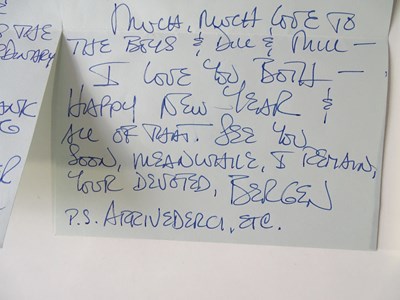 MUCH, MUCH LOVE TO
THE BOYS & DUE & MILL —
I LOVE YOU, BOTH —
HAPPY NEW YEAR &
ALL OF THAT. SEE YOU
SOON, MEANWHILE, I REMAIN,
YOUR DEVOTED, BERGEN
P.S. ARRIVEDERCI, ETC.